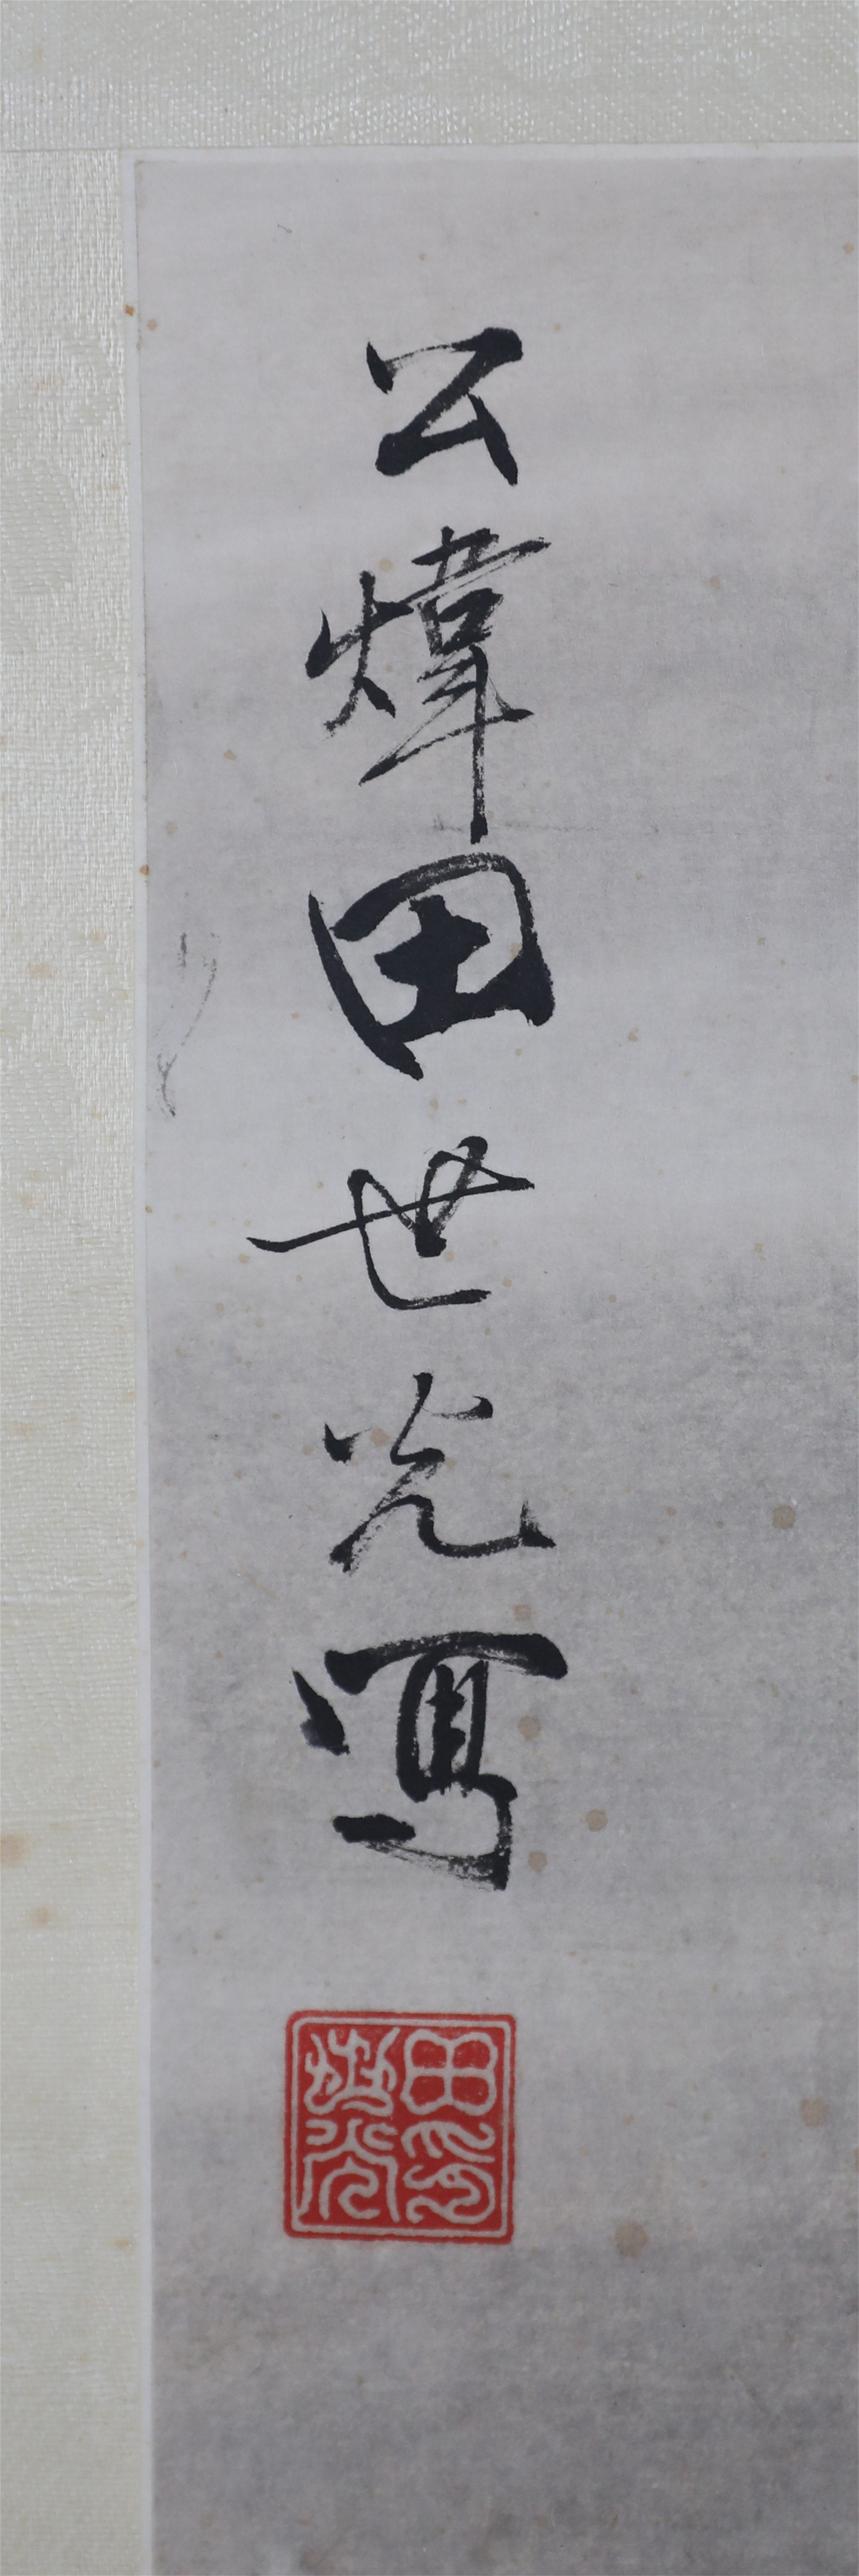 公煒田世光寫
田世光